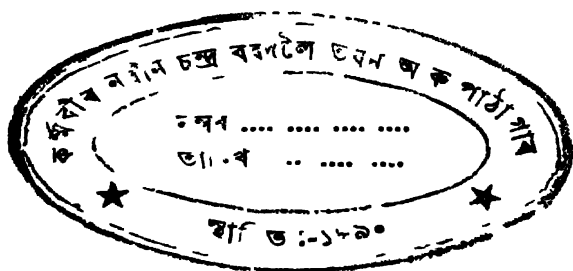 কৰ্মবীৰ নবীন চন্দ্ৰ বৰদলৈ ভৱন অ ক পাঠাগাৰ
নম্বৰ .... .... .... ....
তাৰিখ .. .... ....
স্থাপিত :-১৮৯০